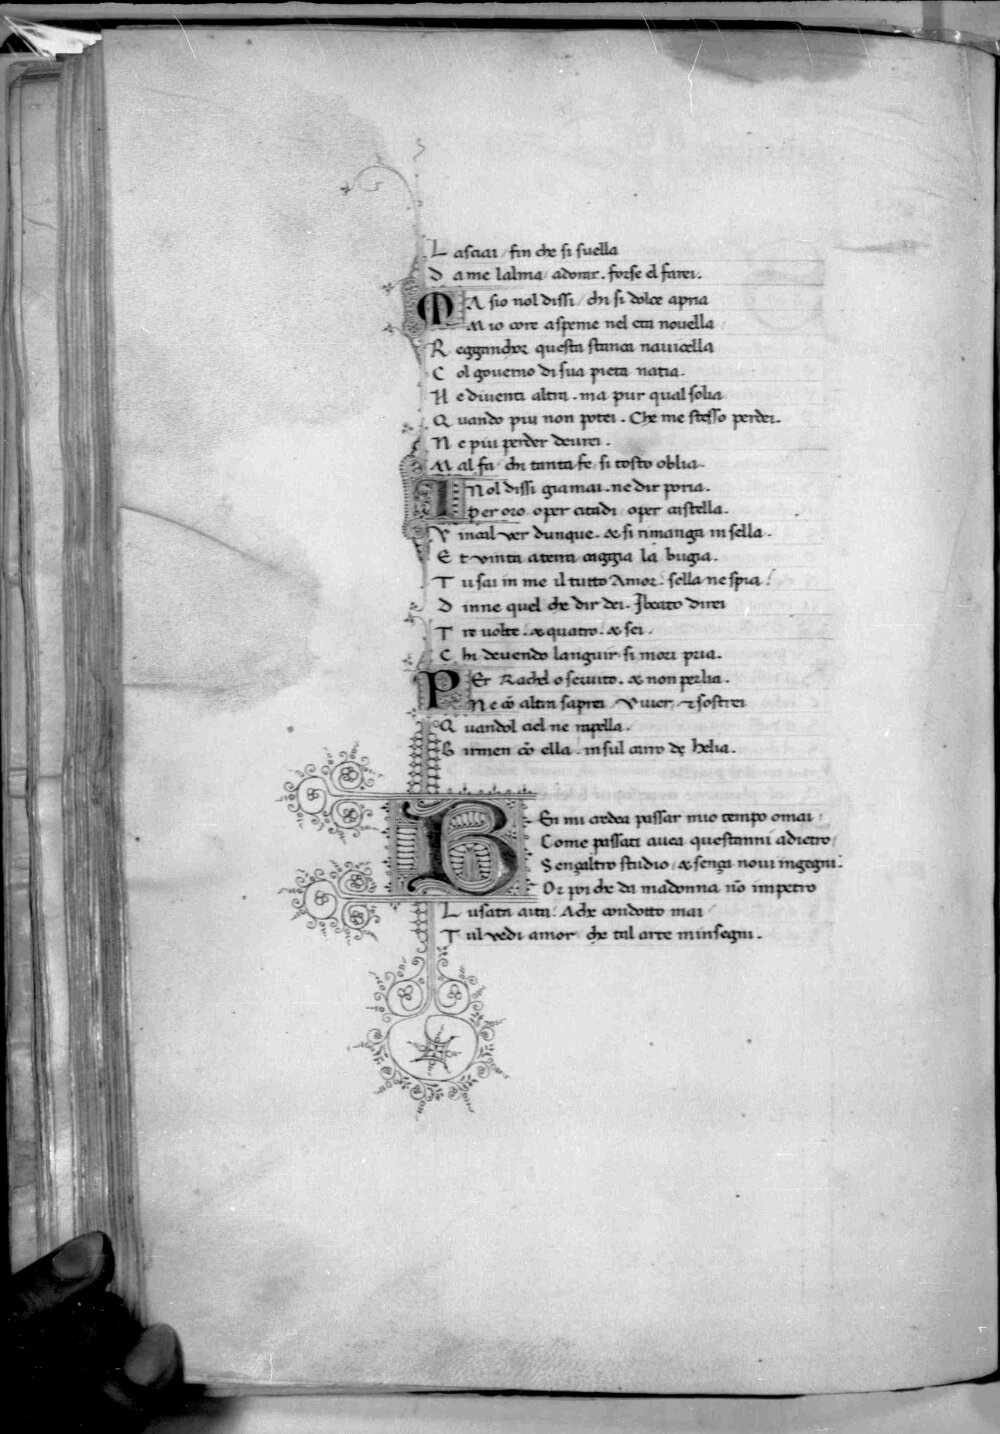 Lasciai / fin che si suella
Da me lalma / adorar. forse el farei.
MA sio nol dissi / chi si dolce apria
Mio core aspeme nel eta nouella /
Regganchor questa stanca nauicella
Col gouerno di sua pieta natia.
Ne diuenti altra. ma pur qual solia
Quando piu non potei. Che me stesso perdei.
Ne piu perder deurei.
Mal fa / chi tanta fe / si tosto oblia.
INol dissi giamai. ne dir poria.
Per oro oper citadi oper castella.
Vincail ver dunque. & si rimanga in sella.
Et vinta a terra caggia la bugia.
Tu sai in me il tutto Amor: sella ne spia /
Dinne quel che dir dei. I beato direi
Tre uolte / & quatro / & sei.
Chi deuendo languir / si mori pria.
PEr Rachel o seruito. & non per lia.
Ne cō altra saprei / Viuer, & sostrei
Quandol ciel ne rapella.
Girmen cō ella / in sul carro de helia.
BEn mi credea passar mio tempo omai /
Come passati auea questanni adietro /
Sençaltro studio / & sença noui ingegni:
Or poi che da madonna nō impetro
Lusata aita: Ache condotto mai /
Tul vedi amor / che tal arte minsegni.